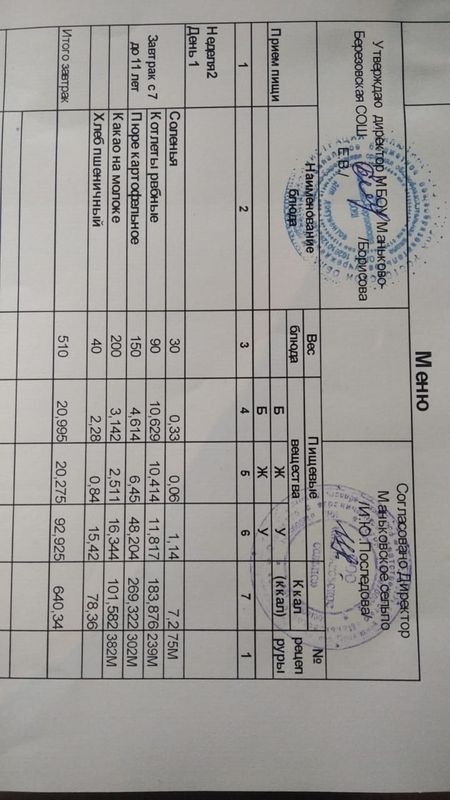 Меню
Утверждаю директор МБОУ Маньково-
Березовская СОШ
/Борисова
Е.В./
Согласовано Директор
Маньковское сельпо
/И.Ю.Последова/
Прием пищи
Наименование
блюда
Вес
блюда
Пищевые
вещества
Ккал
(ккал)
№
рецеп
руры
Б Ж У
Б Ж У
1 2 3 4 5 6 7 1
Неделя2
День 1
Завтрак с 7
до 11 лет
Соленья 30 0,33 0,06 1,14 7,2 75М
Котлеты рвбные 90 10,629 10,414 11,817 183,876 239М
Пюре картофральное 150 4,614 6,45 48,204 269,322 302М
Какао на молоке 200 3,142 2,511 16,344 101,582 382М
Хлеб пшеничный 40 2,28 0,84 15,42 78,36
Итого завтрак 510 20,995 20,275 92,925 640,34